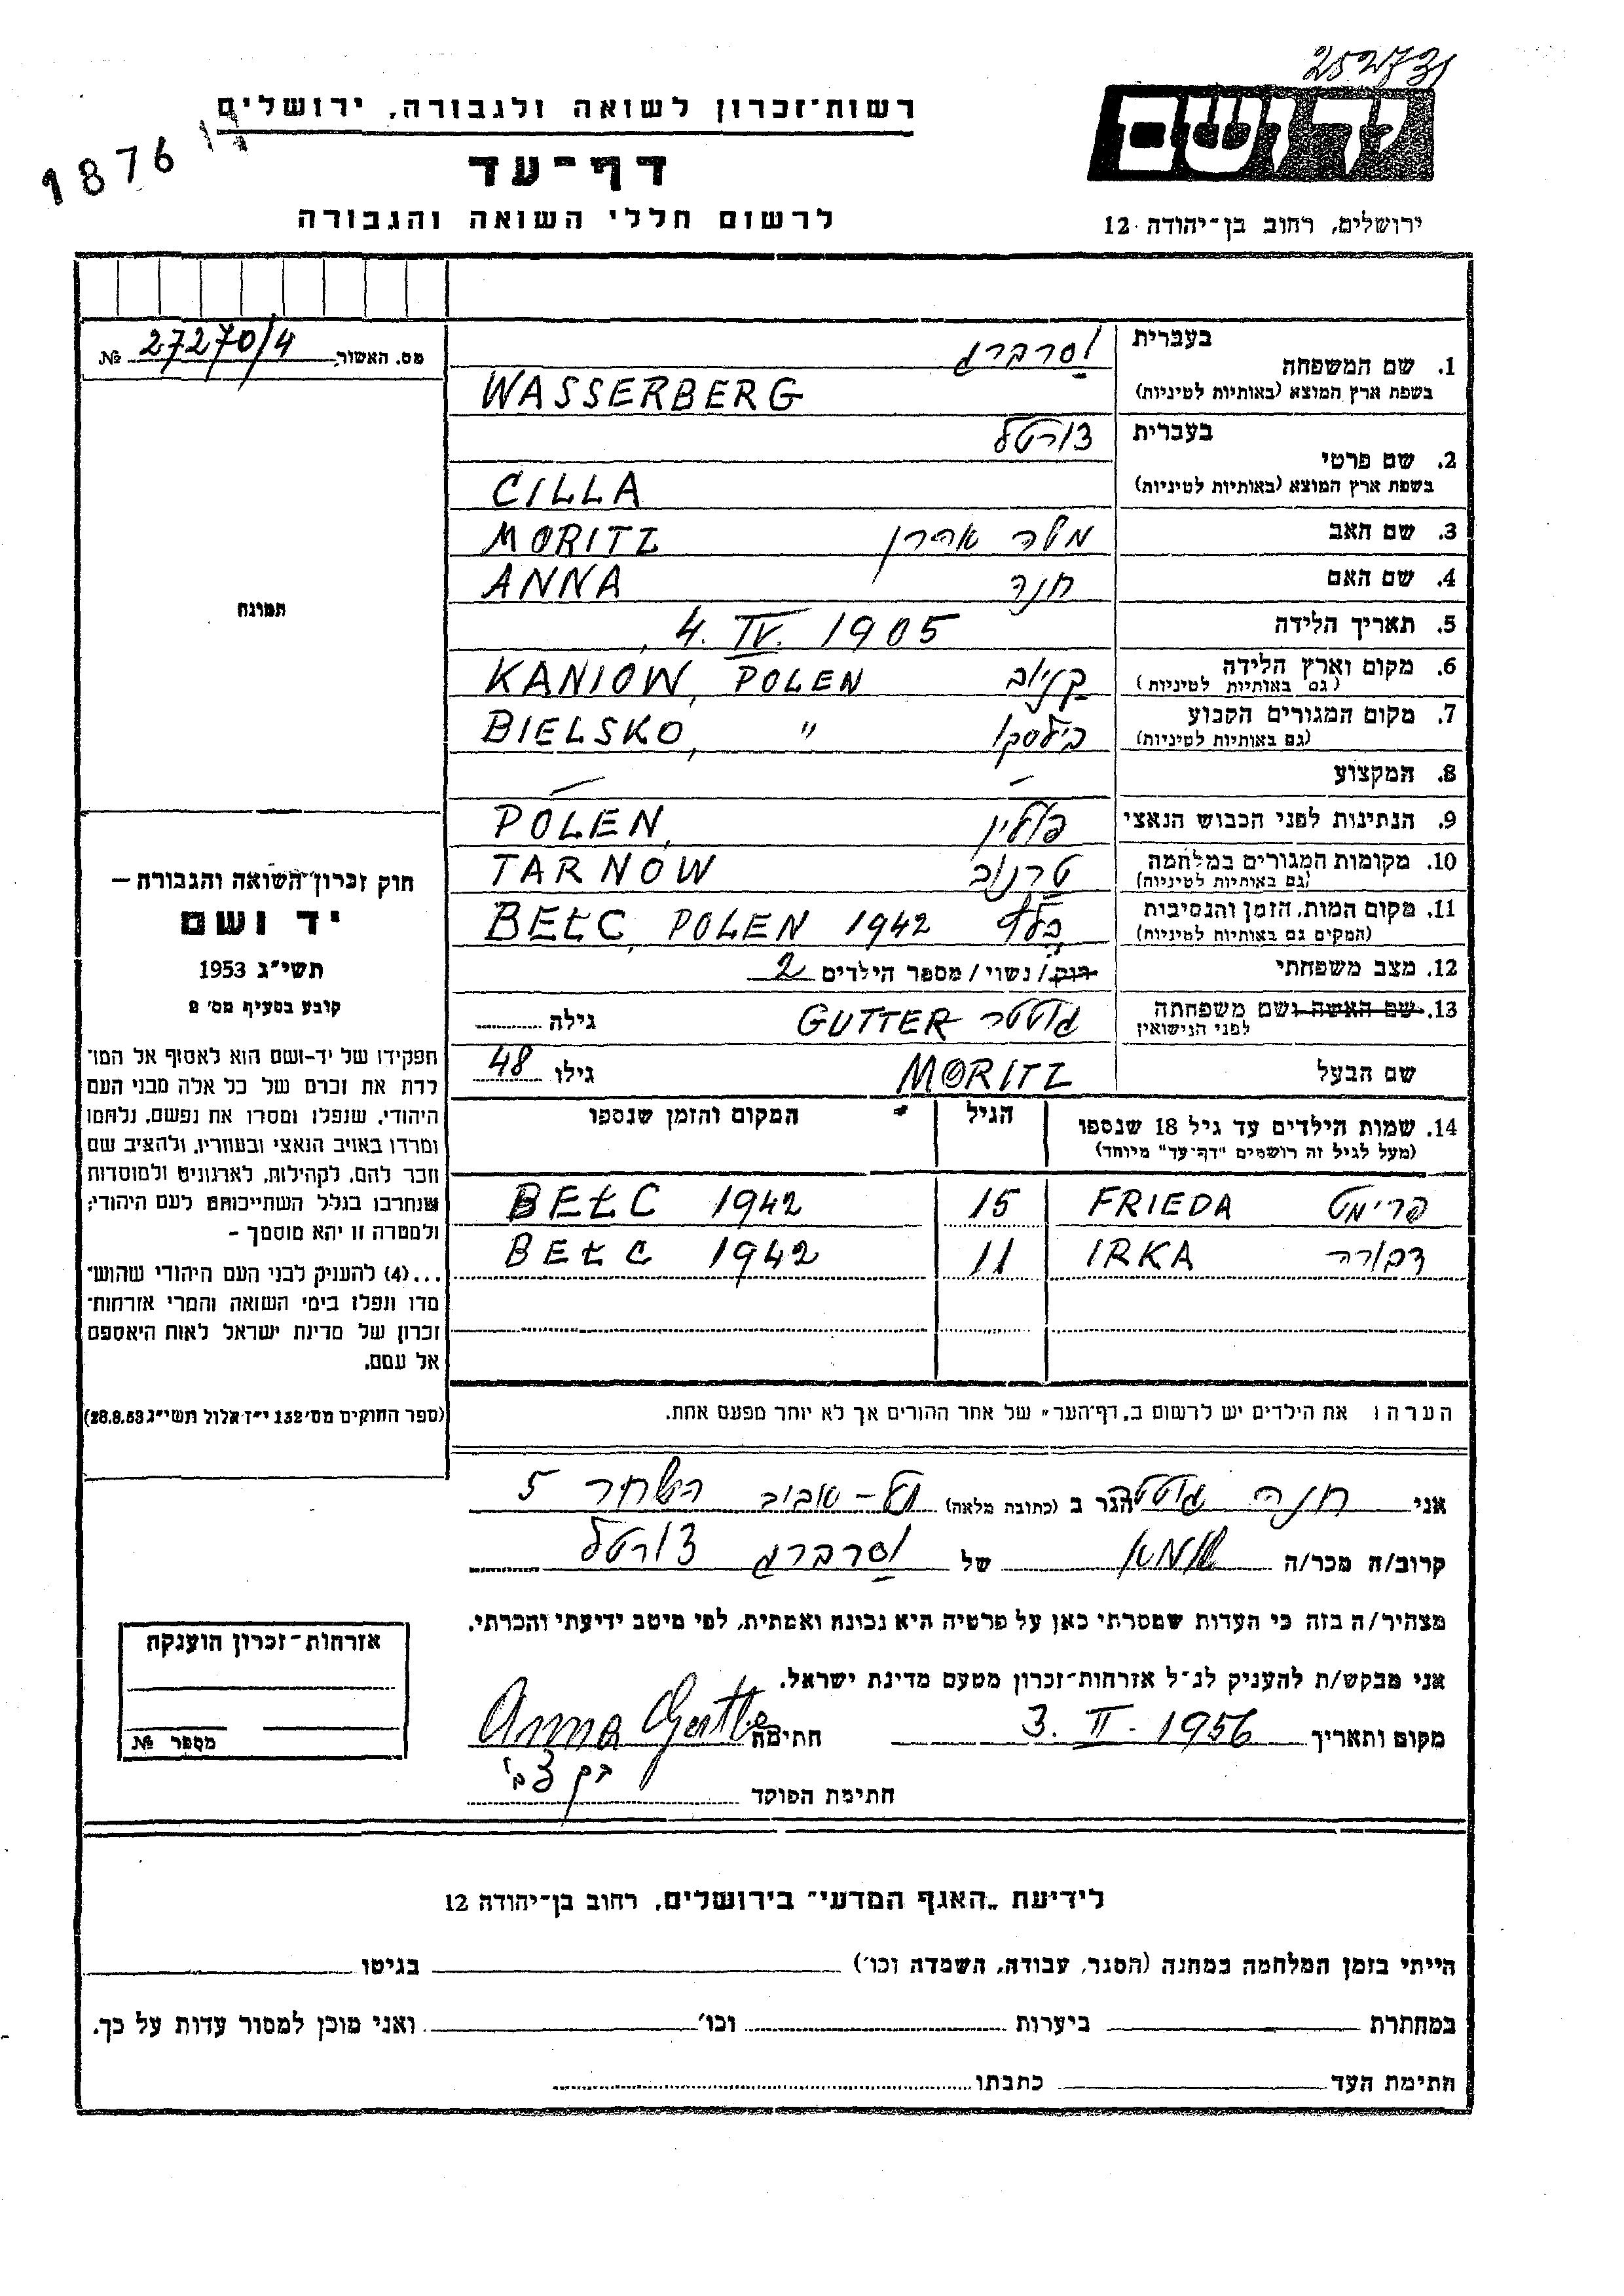 252731
יד ושם
ירושלים, רחוב בן־יהודה 12
רשות־זכרון לשואה ולגבורה, ירושלים
1876
דף־עד
לרשום חללי השואה והגבורה
מס. האשור № 27270/4
תמונה
חוק זכרון השואה והגבורה —
יד ושם
תשי״ג 1953
קובע בסעיף מס׳ 2
תפקידו של יד-ושם הוא לאסוף אל המו־
לדת את זכרם של כל אלה מבני העם
היהודי, שנפלו ומסרו את נפשם, נלחמו
ומרדו באויב הנאצי ובעוזריו, ולהציב שם
וזכר להם, לקהילות, לארגונים ולמוסדות
שנחרבו בגלל השתייכותם לעם היהודי;
ולמטרה זו יהא מוסמך -
...(4) להעניק לבני העם היהודי שהוש־
מדו ונפלו בימי השואה והמרי אזרחות־
זכרון של מדינת ישראל לאות היאספם
אל עמם.
(ספר החוקים מס׳ 132 י״ז אלול תשי״ג 28.8.53)
בעברית וסרברג
1. שם המשפחה
בשפת ארץ המוצא (באותיות לטיניות) WASSERBERG
בעברית צורטל
2. שם פרטי
בשפת ארץ המוצא (באותיות לטיניות) CILLA
3. שם האב משה אהרן MORITZ
4. שם האם חנה ANNA
5. תאריך הלידה 4. IV. 1905
6. מקום וארץ הלידה קניוב KANIOW, POLEN
(גם באותיות לטיניות)
7. מקום המגורים הקבוע בילסקו BIELSKO, "
(גם באותיות לטיניות)
8. המקצוע — —
9. הנתינות לפני הכבוש הנאצי פולין POLEN,
10. מקומות המגורים במלחמה טרנוב TARNOW
(גם באותיות לטיניות)
11. מקום המות, הזמן והנסיבות בלץ BEŁC, POLEN 1942
(המקום גם באותיות לטיניות)
12. מצב משפחתי רווק / נשוי / מספר הילדים 2
13. שם האשה ושם משפחתה גוטטר GUTTER גילה
לפני הנישואין
שם הבעל MORITZ גילו 48
14. שמות הילדים עד גיל 18 שנספו הגיל המקום והזמן שנספו
(מעל לגיל זה רושמים "דף־עד" מיוחד)
פרימט FRIEDA 15 BEŁC 1942
דבורה IRKA 11 BEŁC 1942
הערה: את הילדים יש לרשום ב„דף־העד״ של אחד ההורים אך לא יותר מפעם אחת.
אני חנה גוטטר הגר ב (כתובת מלאה) תל-אביב השחר 5
קרוב/ה מכר/ה אמא של וסרברג צורטל
מצהיר/ה בזה כי העדות שמסרתי כאן על פרטיה היא נכונה ואמתית, לפי מיטב ידיעתי והכרתי.
אני מבקש/ת להעניק לנ״ל אזרחות־זכרון מטעם מדינת ישראל.
מקום ותאריך 3. II. 1956 חתימה Anna Gutter
חתימת הפוקד
אזרחות־זכרון הוענקה
מספר №
לידיעת „האגף המדעי״ בירושלים, רחוב בן־יהודה 12
הייתי בזמן המלחמה במחנה (הסגר, עבודה, השמדה וכו׳) בגיטו
במחתרת ביערות וכו׳ ואני מוכן למסור עדות על כך.
חתימת העד כתבתו